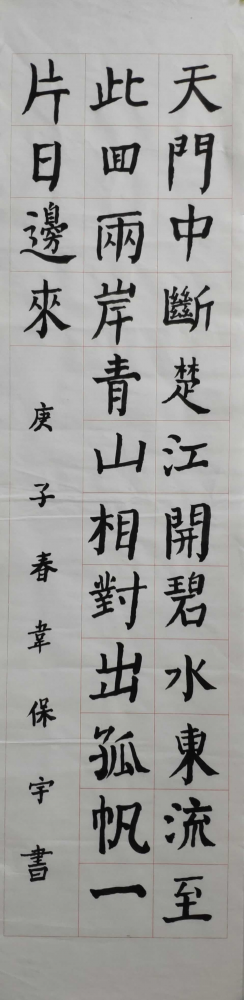 天門中斷楚江開碧水東流至
此回兩岸青山相對出孤帆一
片日邊來 庚子春韋保宇書